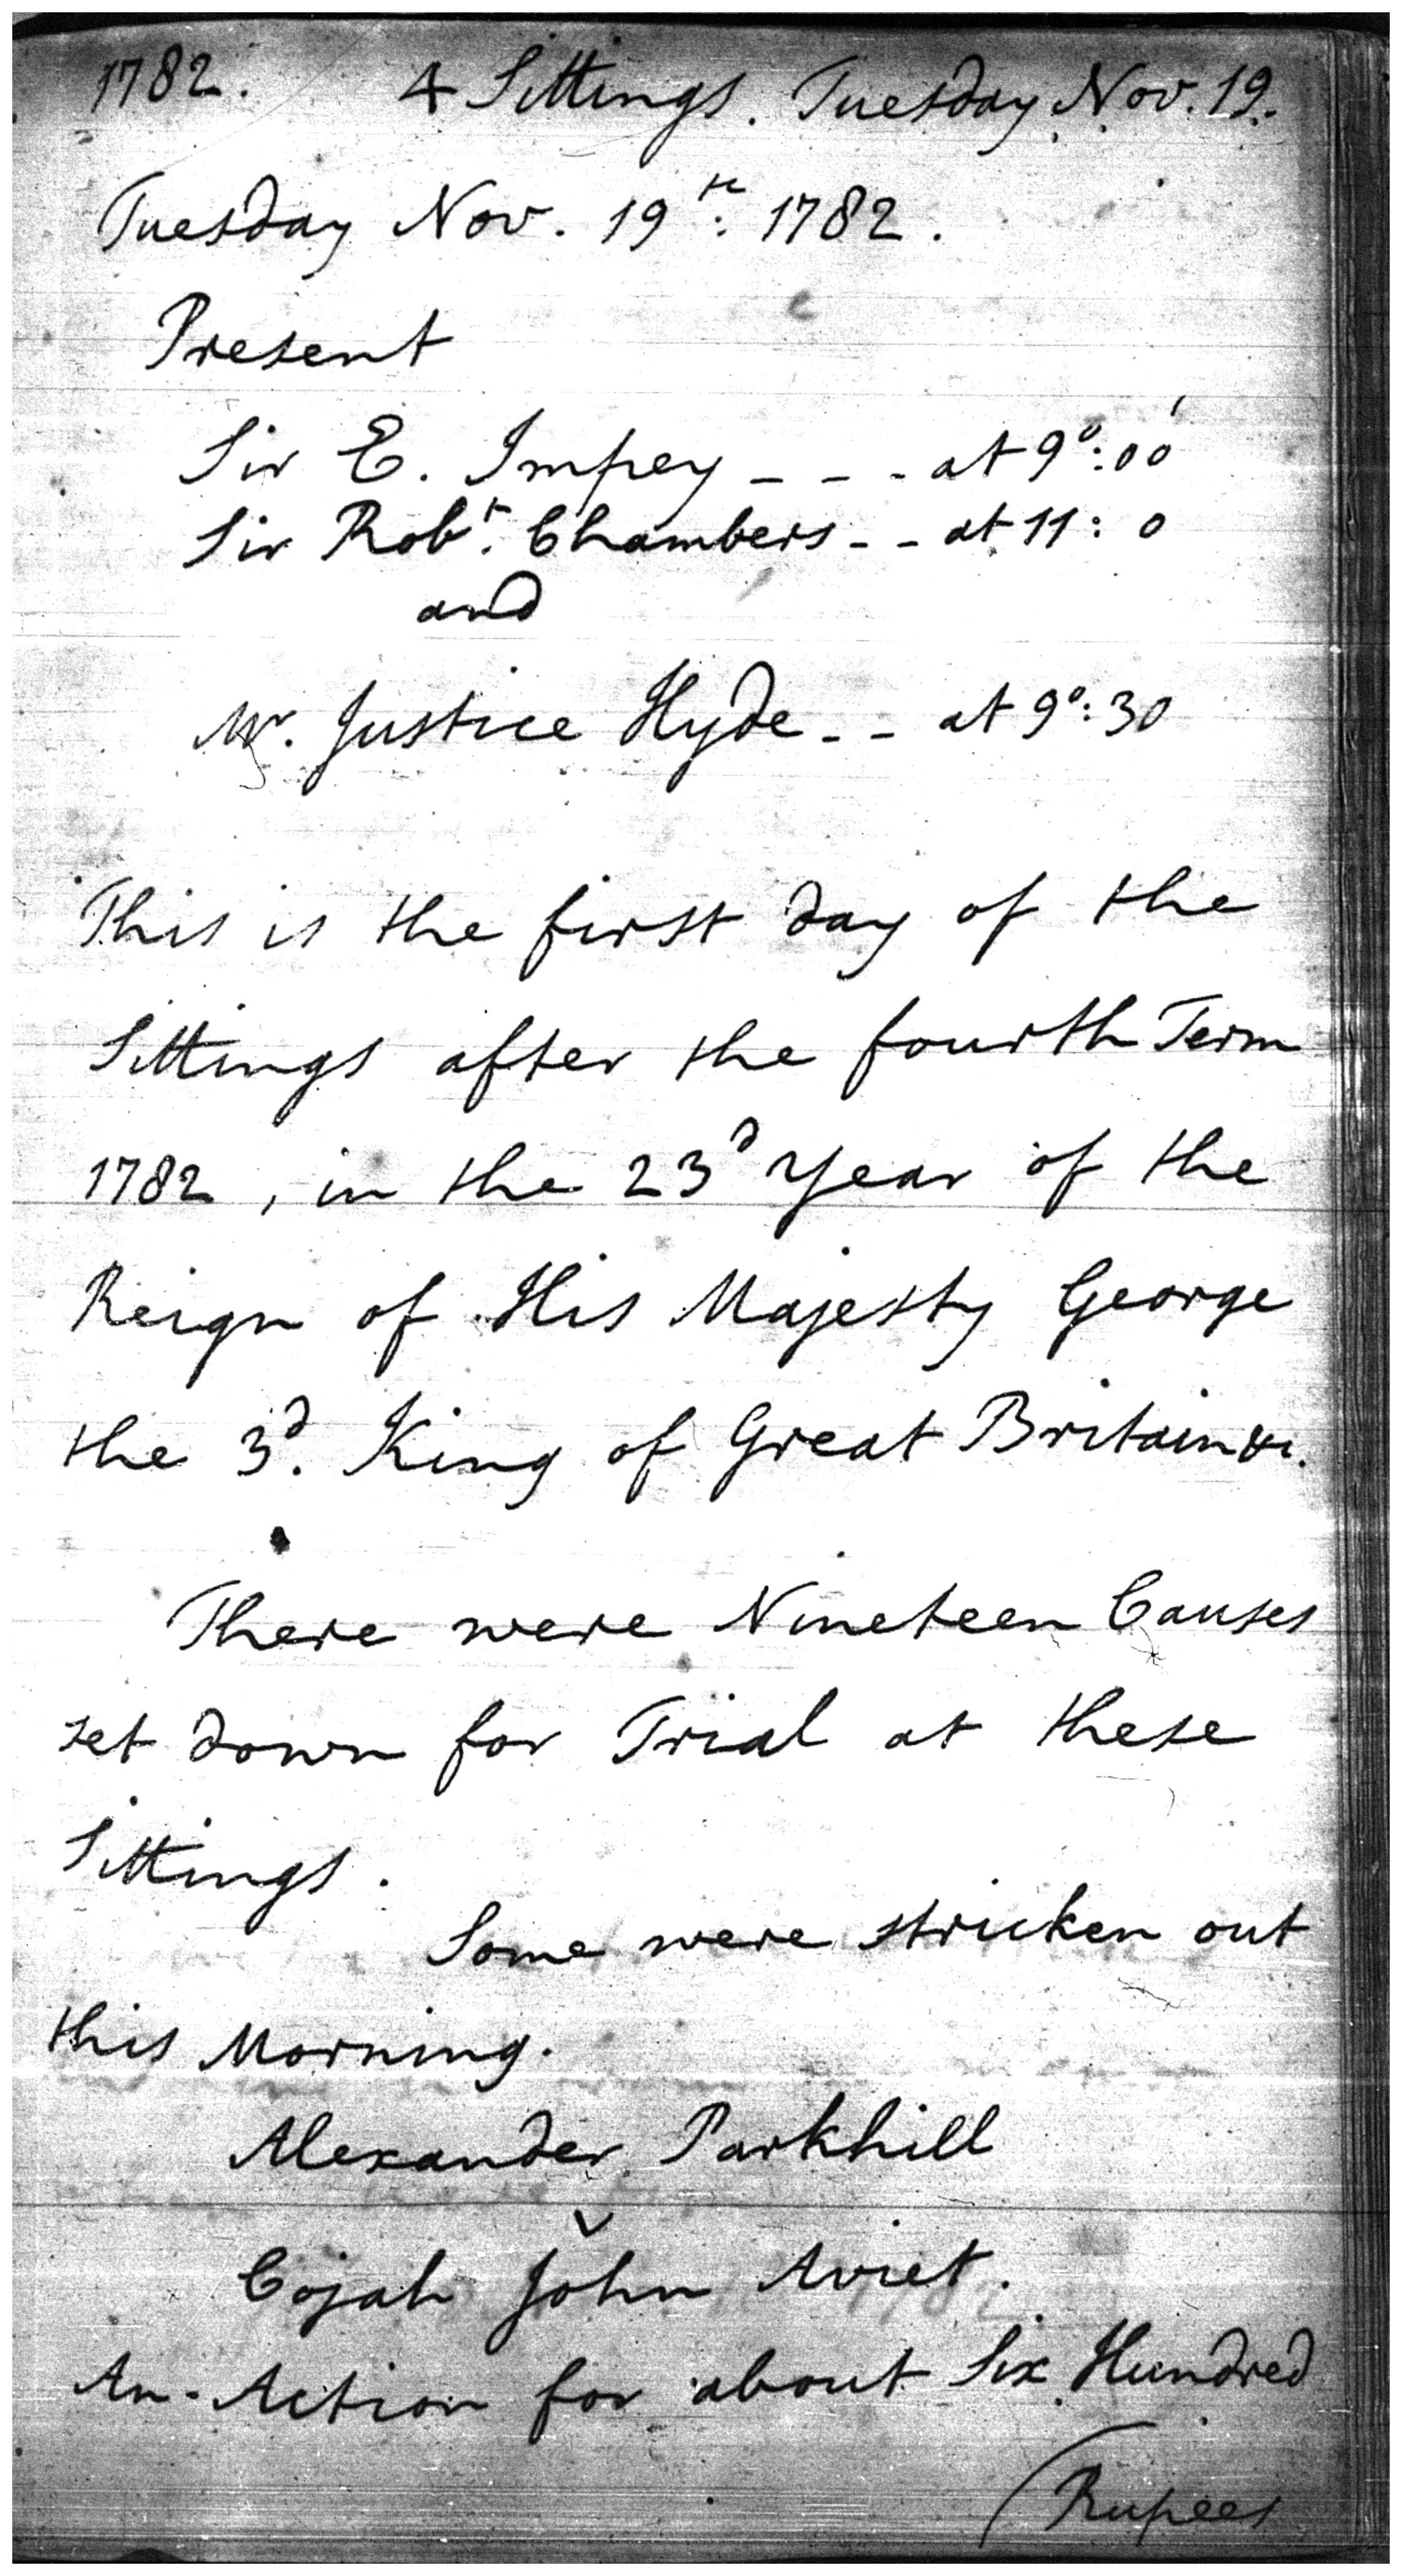 1782. 4 Sittings. Tuesday Nov. 19.
Tuesday Nov. 19th: 1782.
Present
Sir E. Impey - - - at 9°:00'
Sir Robt. Chambers - - at 11: 0
and
Mr. Justice Hyde - - at 9°:30
This is the first day of the
Sittings after the fourth Term
1782, in the 23d Year of the
Reign of His Majesty George
the 3d. King of Great Britain &c.
There were Nineteen Causes
set down for Trial at these
Sittings.
Some were stricken out
this Morning.
Alexander Parkhill
v
Cojah John Aviet.
An Action for about Six Hundred
(Rupees